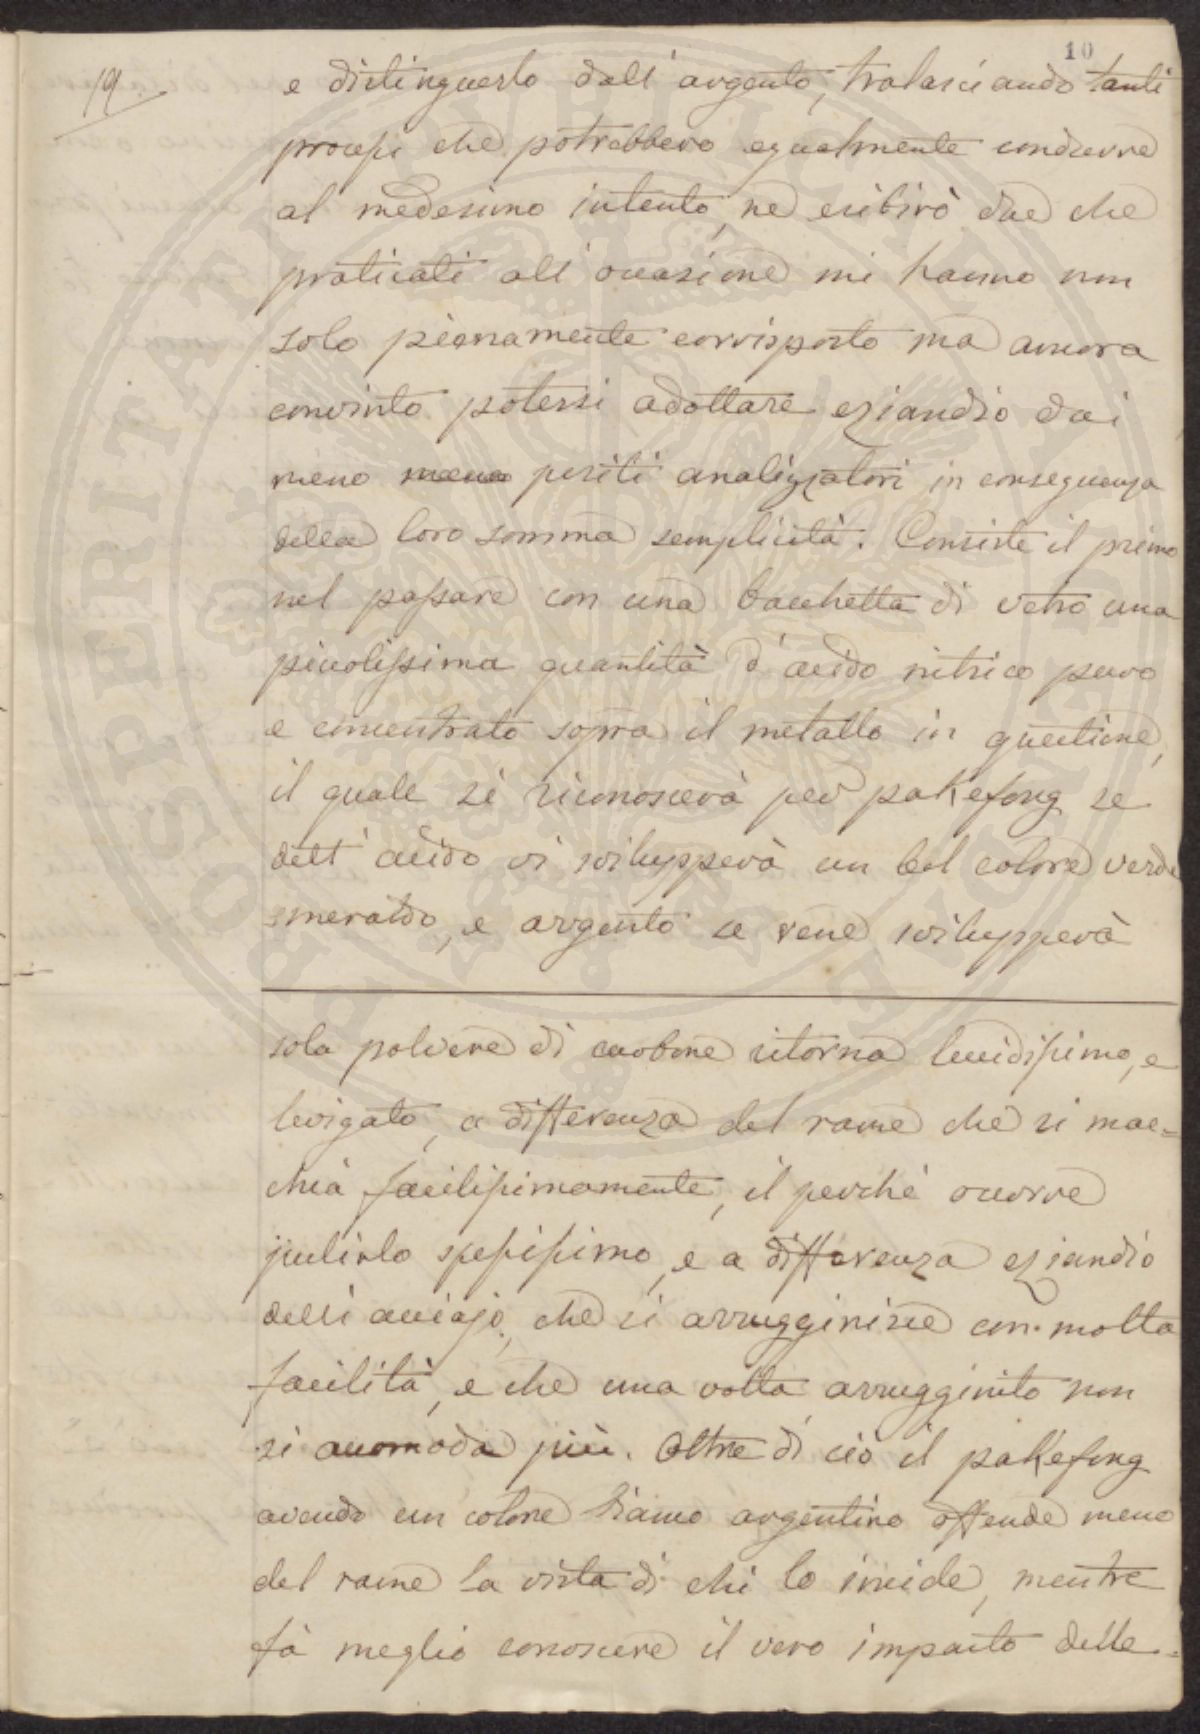 10
19
e distinguerlo dall'argento, tralasciando tanti
processi che potrebbero egualmente condurre
al medesimo intento, ne esibirò due che
praticati all'occasione mi hanno non
solo pienamente corrisposto ma ancora
convinto potersi adottare eziandio dai
meno periti analizzatori in conseguenza
della loro somma semplicità. Consiste il primo
nel passare con una bacchetta di vetro una
piccolissima quantità d'acido nitrico puro
e concentrato sopra il metallo in questione,
il quale si riconoscerà per pakefong se
dall'acido vi svilupperà un bel colore verde
smeraldo, e argento se vene svilupperà
sola polvere di carbone ritorna lucidissimo, e
levigato, a differenza del rame che si mac=
chia facilissimamente, il perché occorre
pulirlo spessissimo, e a differenza eziandio
dell'acciajo, che si arrugginisce con molta
facilità, e che una volta arrugginito non
si accomoda più. Oltre di ciò il pakefong
avendo un colore bianco argentino offende meno
del rame la vista di chi lo incide, mentre
fà meglio conoscere il vero impasto delle
PROSPERITATI PUBLICAE AUGENDAE